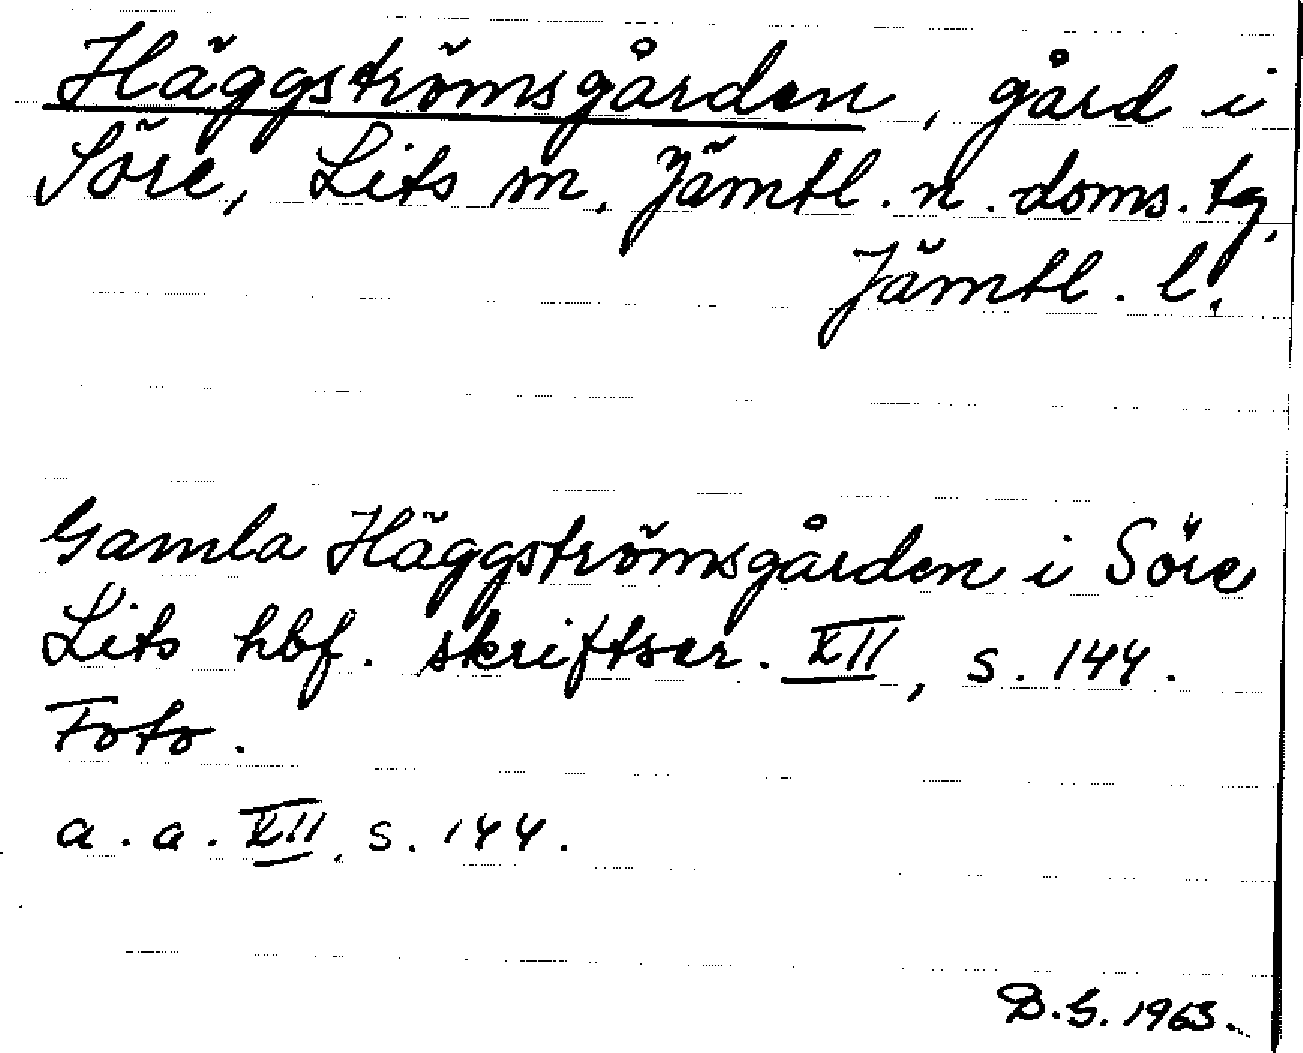 Häggströmsgården, gård i
Söre, Lits m. Jämtl. n. doms. tg.
Jämtl. l.
Gamla Häggströmsgården i Söre
Lits hbf. skriftser. XII, s. 144.
Foto.
a. a. XII, s. 144.
D.G. 1963.